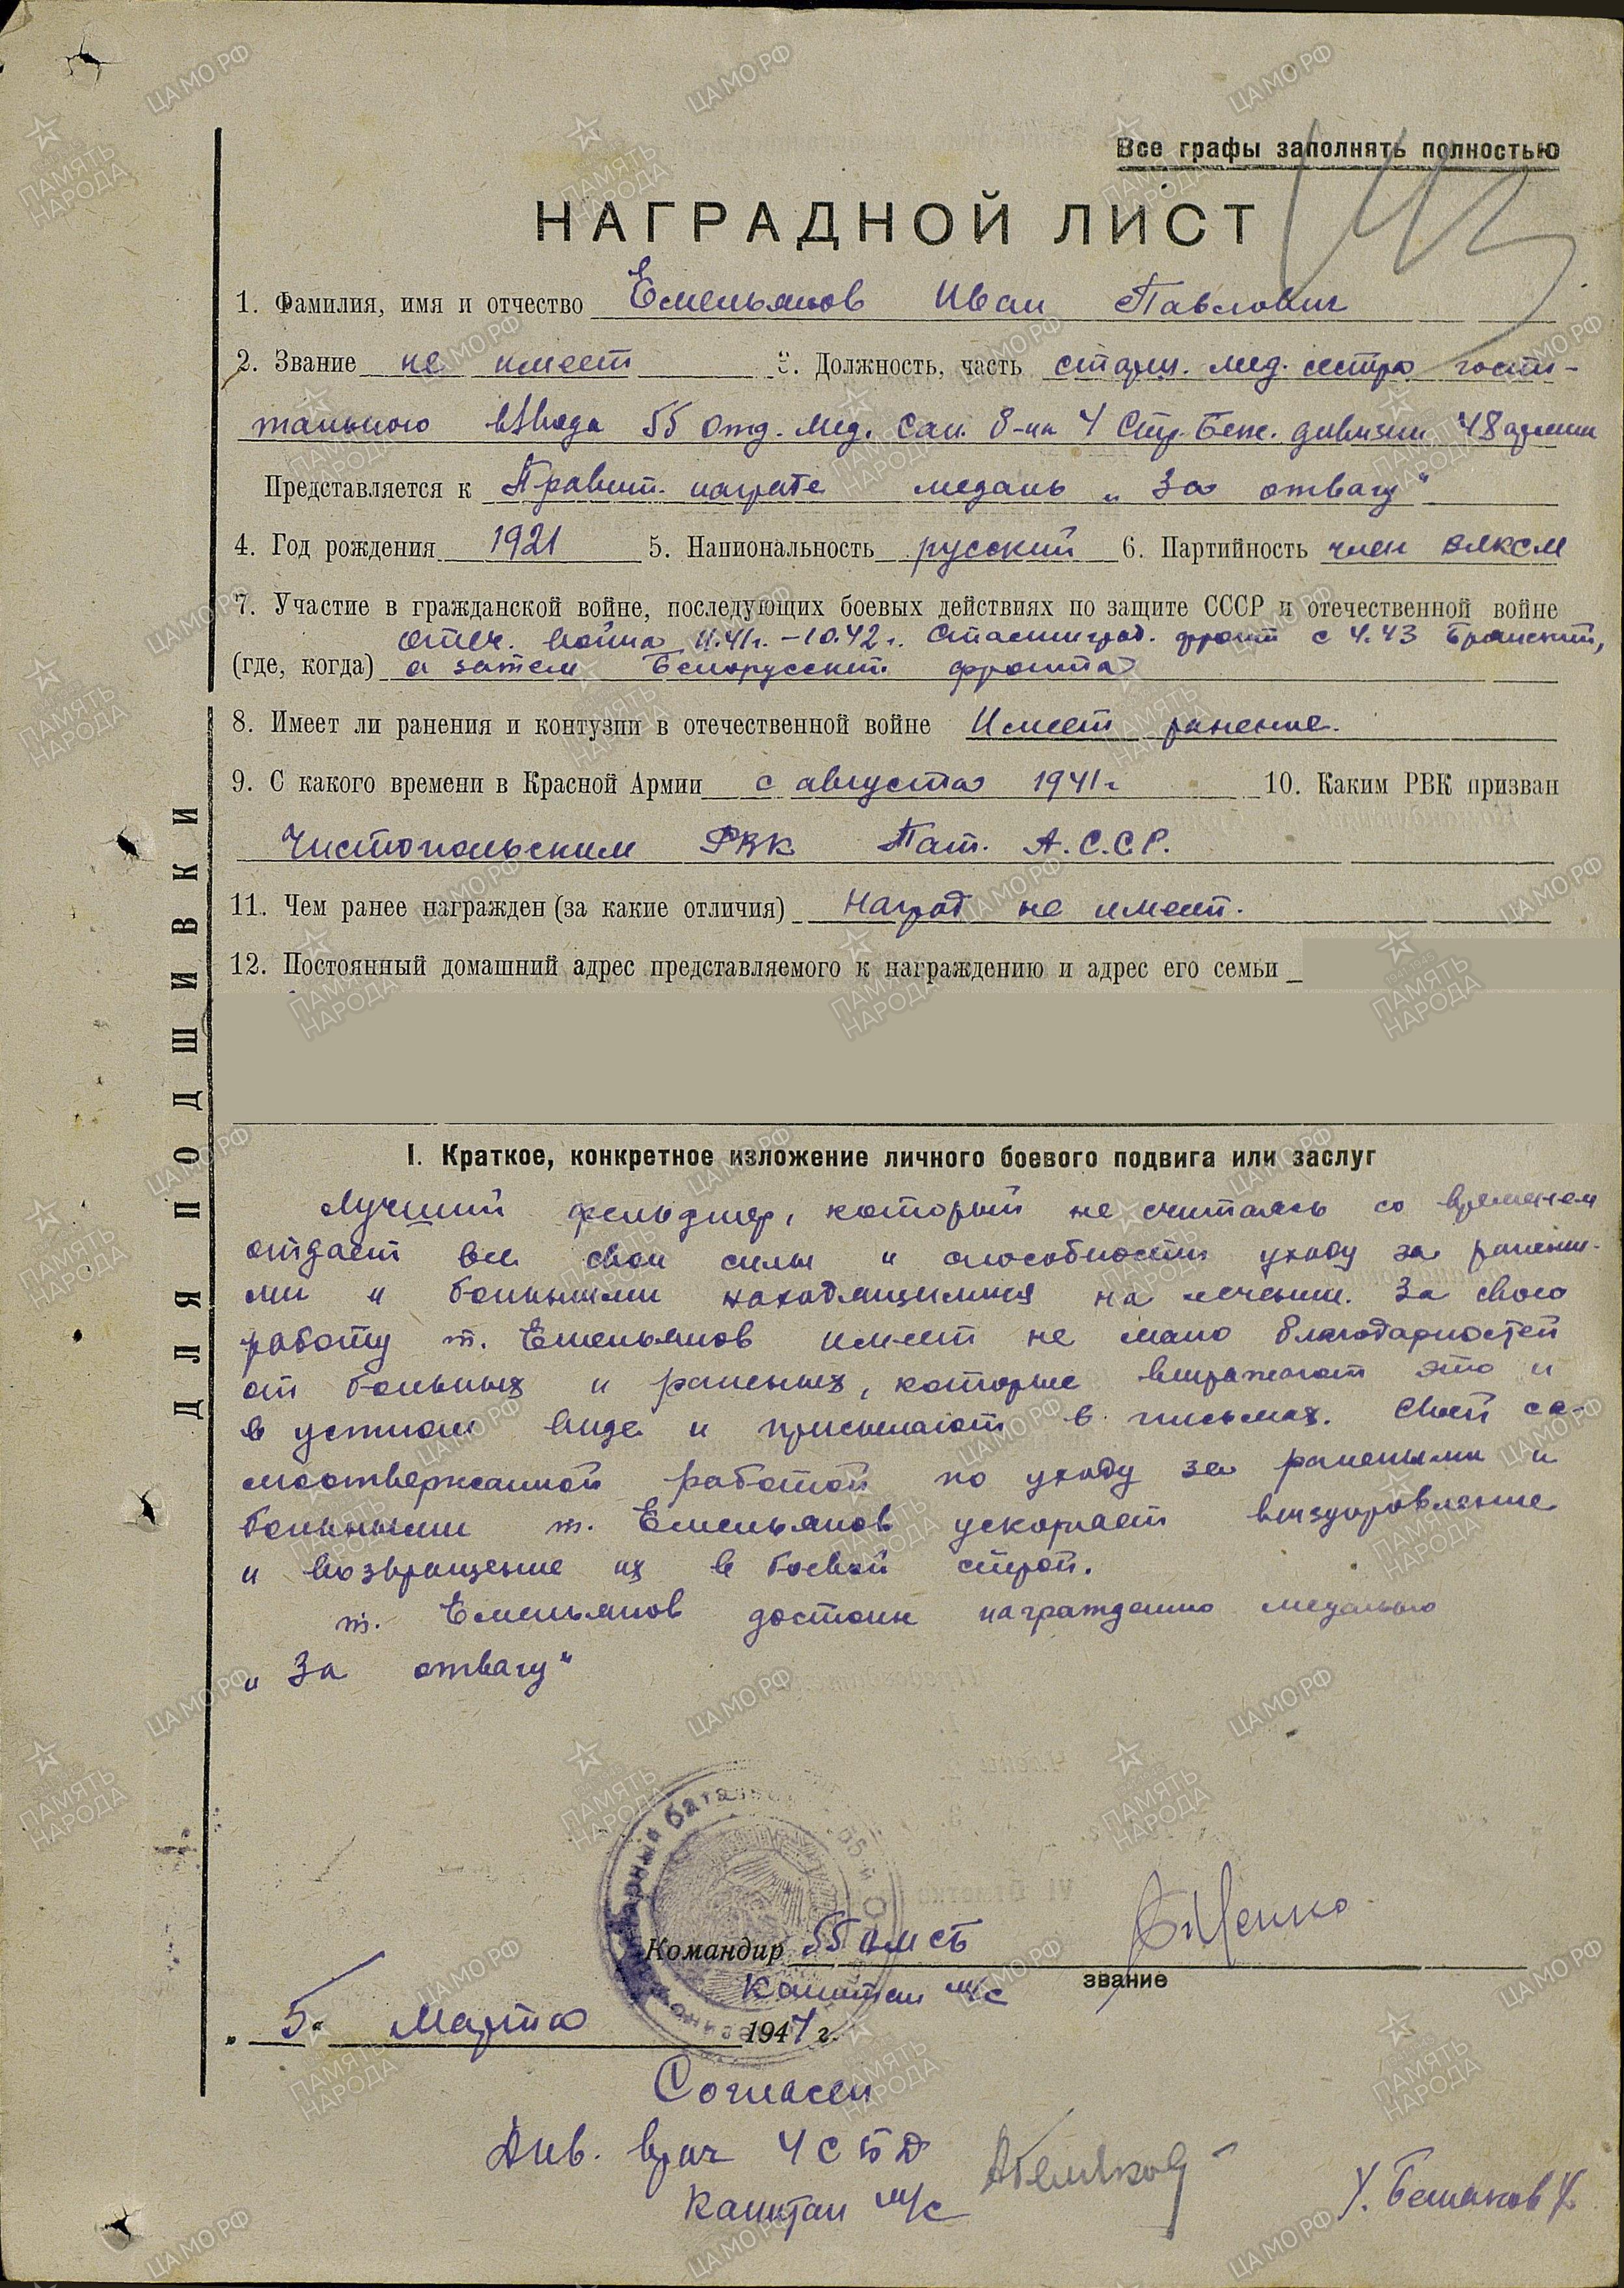 Все графы заполнять полностью
НАГРАДНОЙ ЛИСТ
1. Фамилия, имя и отчество Емельянов Иван Павлович
2. Звание не имеет 3. Должность, часть старш. мед. сестра госпи-
тального взвода 55 отд. мед. сан. б-на 4 Стр. Беж. дивизии 48 армии
Представляется к Правит. награде медаль „За отвагу“
4. Год рождения 1921 5. Национальность русский 6. Партийность член ВЛКСМ
7. Участие в гражданской войне, последующих боевых действиях по защите СССР и отечественной войне
отеч. война 11.41г. – 10.42г. Сталинград. фронт с 4.43 Брянский,
(где, когда) а затем Белорусский фронта
8. Имеет ли ранения и контузии в отечественной войне Имеет ранение.
9. С какого времени в Красной Армии с августа 1941г 10. Каким РВК призван
Чистопольским РВК Тат. А.С.С.Р.
11. Чем ранее награжден (за какие отличия) Наград не имеет.
12. Постоянный домашний адрес представляемого к награждению и адрес его семьи
ДЛЯ ПОДШИВКИ
I. Краткое, конкретное изложение личного боевого подвига или заслуг
Лучший фельдшер, который не считаясь со временем
отдает все свои силы и способности уходу за ранены-
ми и больными находящимися на лечении. За свою
работу т. Емельянов имеет не мало благодарностей
от больных и раненых, которые выражают это и
в устном виде и присылают в письмах. Своей са-
моотверженной работой по уходу за ранеными и
больными т. Емельянов ускоряет выздоровление
и возвращение их в боевой строй.
т. Емельянов достоин награждению медалью
„За отвагу“
Командир 55 омсб
звание
Капитан м/с
„5“ Марта 1944 г.
Согласен
Див. врач 4 СБД
Капитан м/с
ЦАМО РФ
ПАМЯТЬ НАРОДА